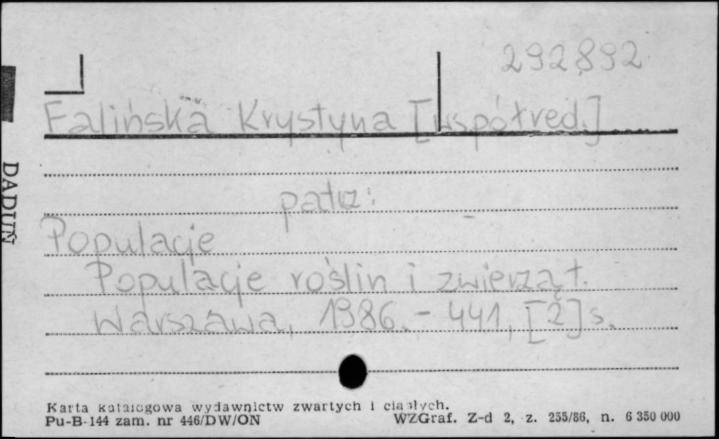 292892
Falińska Krystyna [współred.]
patrz:
Populacje
Populacje roślin i zwierząt.
Warszawa, 1986. - 441, [2] s.
DADUŃ
Karta katalogowa wydawnictw zwartych i ciągłych.
Pu-B-144 zam. nr 446/DW/ON WZGraf. Z-d 2, z. 255/86, n. 6 350 000